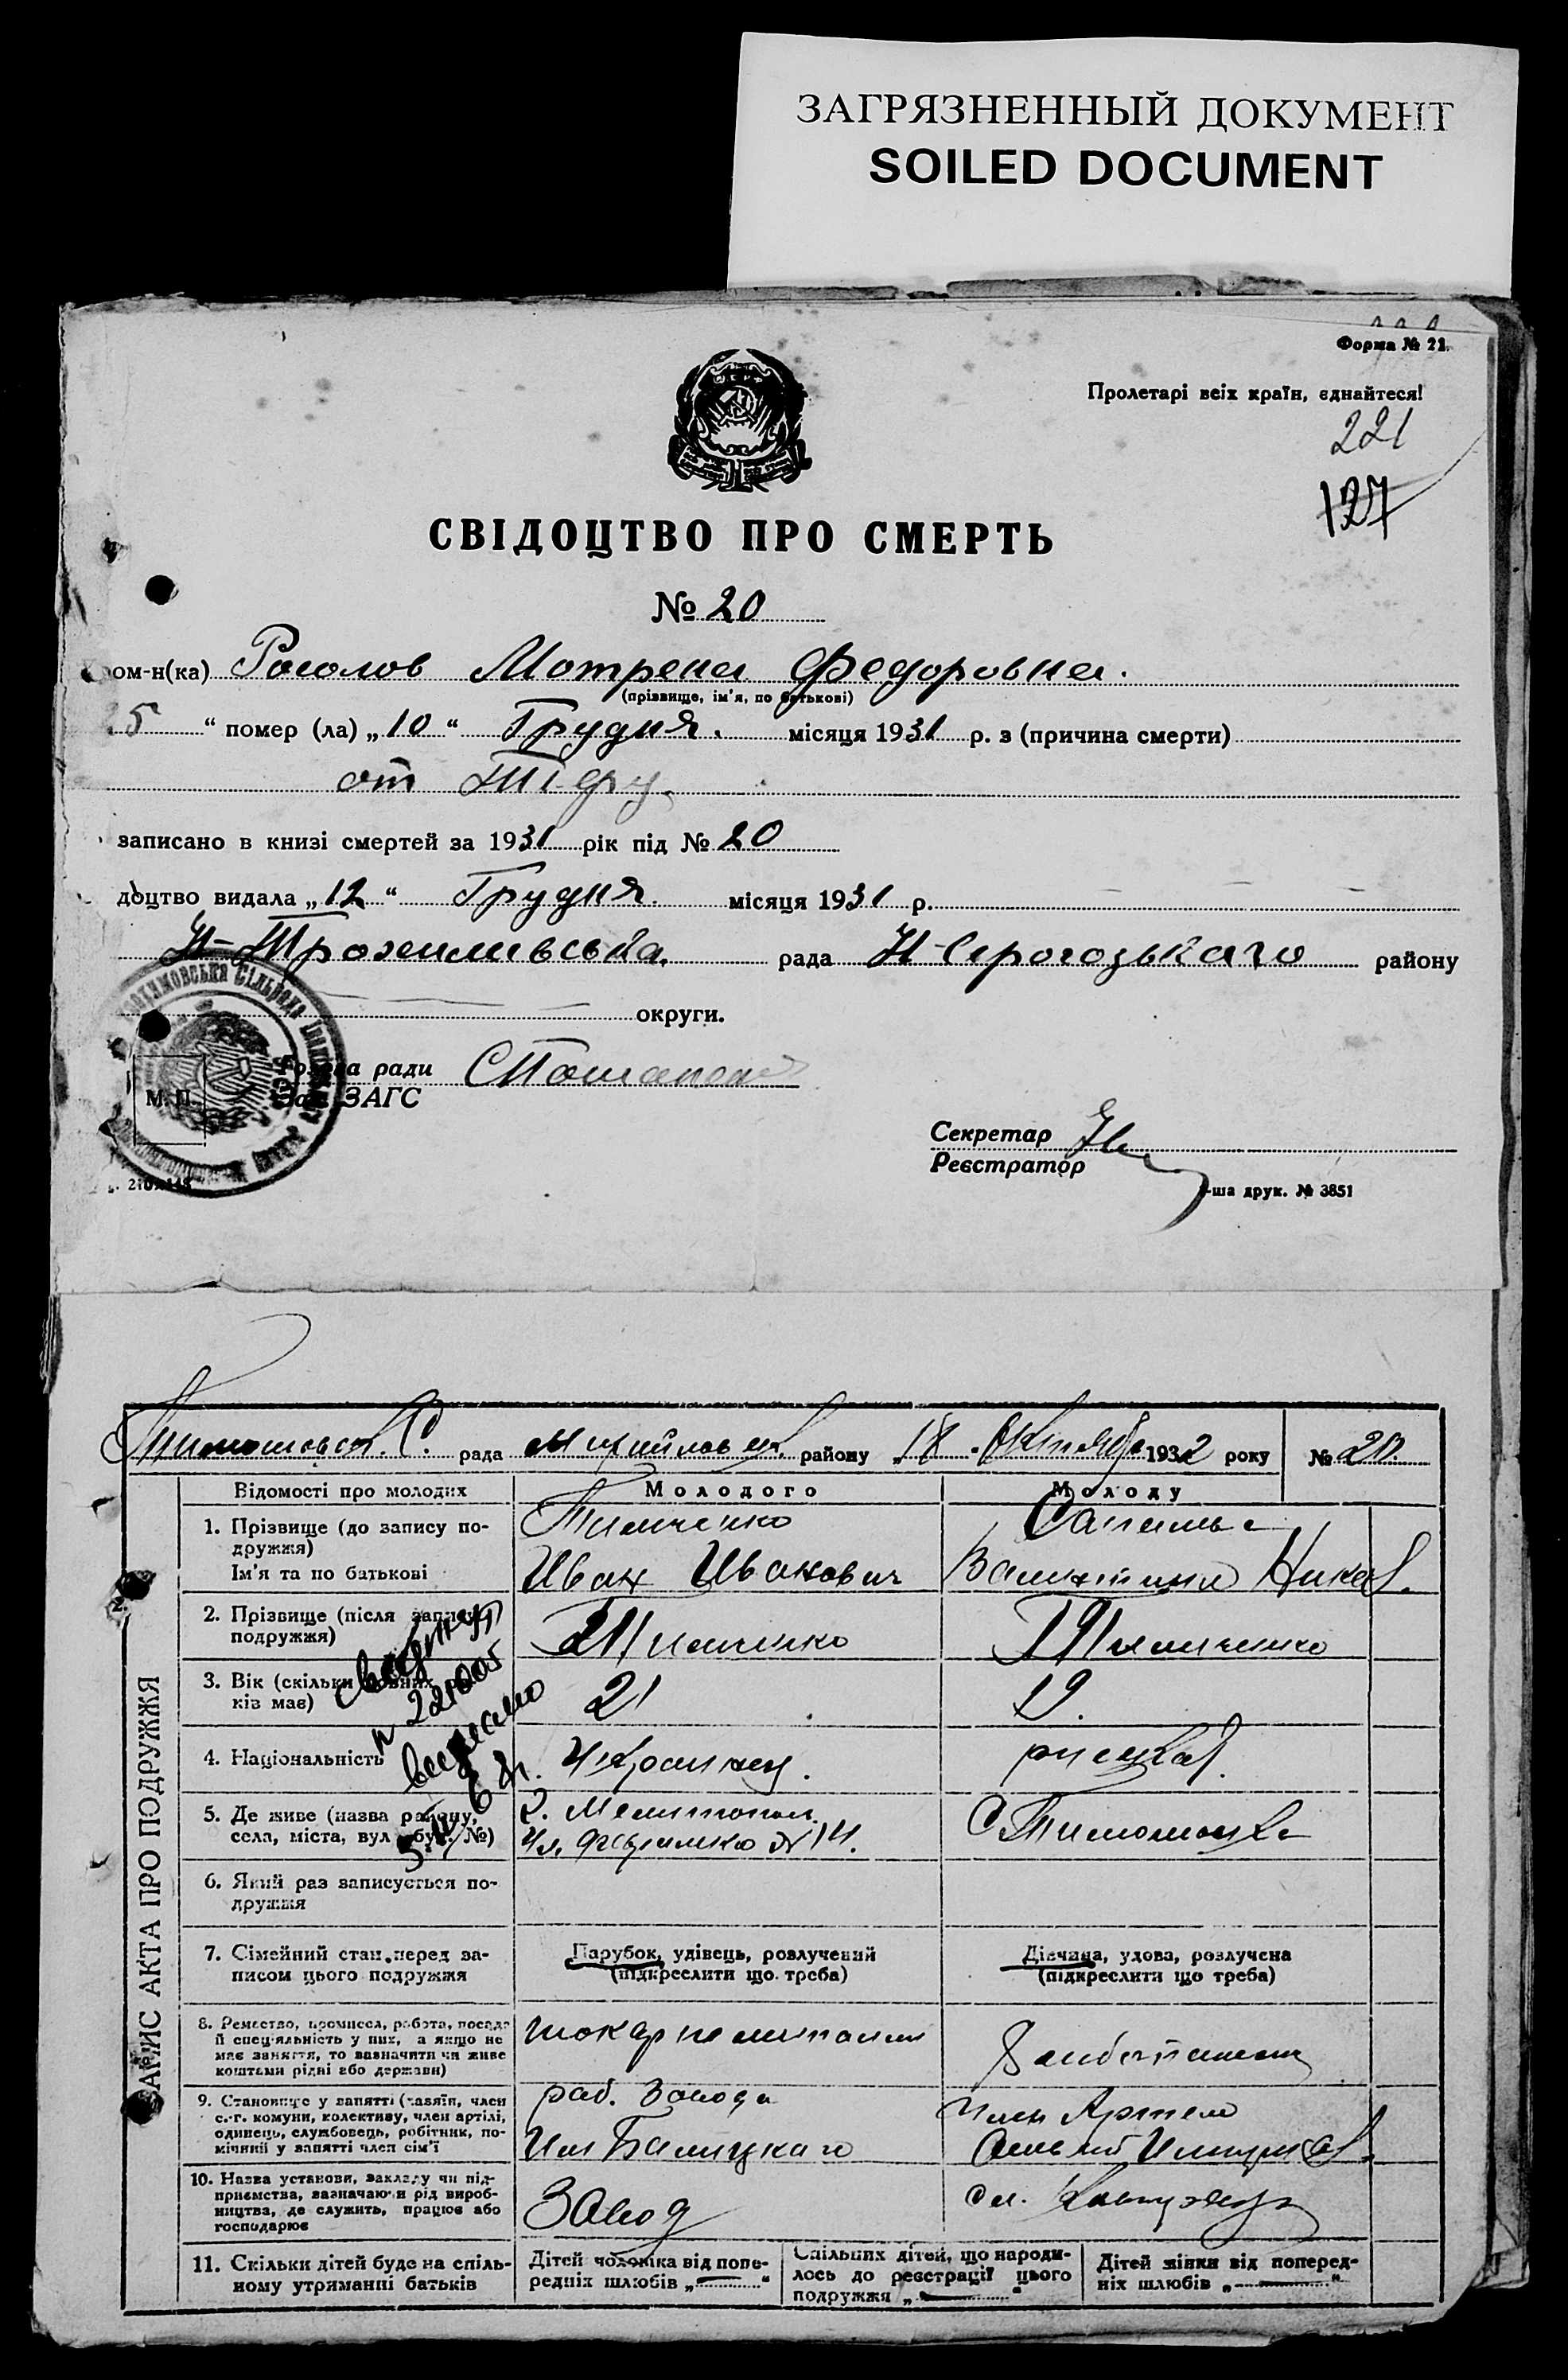 ЗАГРЯЗНЕННЫЙ ДОКУМЕНТ
SOILED DOCUMENT
Форма № 21.
Пролетарі всіх країн, єднайтеся!
221
127
СВІДОЦТВО ПРО СМЕРТЬ
№ 20
ом-н(ка) Мотрена Федоровна.
(прізвище, ім'я, по батькові)
5 " помер (ла) „ 10 " Грудня. місяця 1931 р. з (причина смерти)
от
записано в книзі смертей за 1931 рік під № 20
доцтво видала „ 12 " Грудня. місяця 1931 р.
рада Н-Сірогозького району
округи.
Голова ради
Зав. ЗАГС
М. П.
Секретар
Реєстратор
-ша друк. № 3851
С. рада району 18 Октября 1932 року № 20.
Відомості про молодих Молодого Молоду
1. Прізвище (до запису по-
дружжя)
Тимченко
Ім'я та по батькові Иван Иванович Валентина Никол.
2. Прізвище (після запису
подружжя)
Тимченко Тимченко
3. Вік (скільки повних ро-
ків має)
21 19.
4. Національність Украинец. русская.
5. Де живе (назва району,
села, міста, вул. буд. №)
г. Мелитополь
С. Тимошовка
6. Який раз записується по-
дружжя
7. Сімейний стан перед за-
писом цього подружжя
Парубок, удівець, розлучений
(підкреслити що треба)
Дівчина, удова, розлучена
(підкреслити що треба)
8. Ремество, промисел, робота, посада
й спеціяльність у них, а якщо не
має заняття, то зазначити чи живе
коштами рідні або держави)
токар
9. Становище у занятті (хазяїн, член
с.-г. комуни, колективу, член артілі,
одинець, службовець, робітник, по-
мічний у занятті член сім'ї
раб. Завода
Им Балицкаго
Член Артели
10. Назва установи, закладу чи під-
приємства, зазначаючи рід вироб-
ництва, де служить, працює або
господарює
Завод
11. Скільки дітей буде на спіль-
ному утриманні батьків
Дітей чоловіка від попе-
редніх шлюбів „ — "
Спільних дітей, що народи-
лось до реєстрації цього
подружжя „ — "
Дітей жінки від поперед-
ніх шлюбів „ — "
ЗАПИС АКТА ПРО ПОДРУЖЖЯ